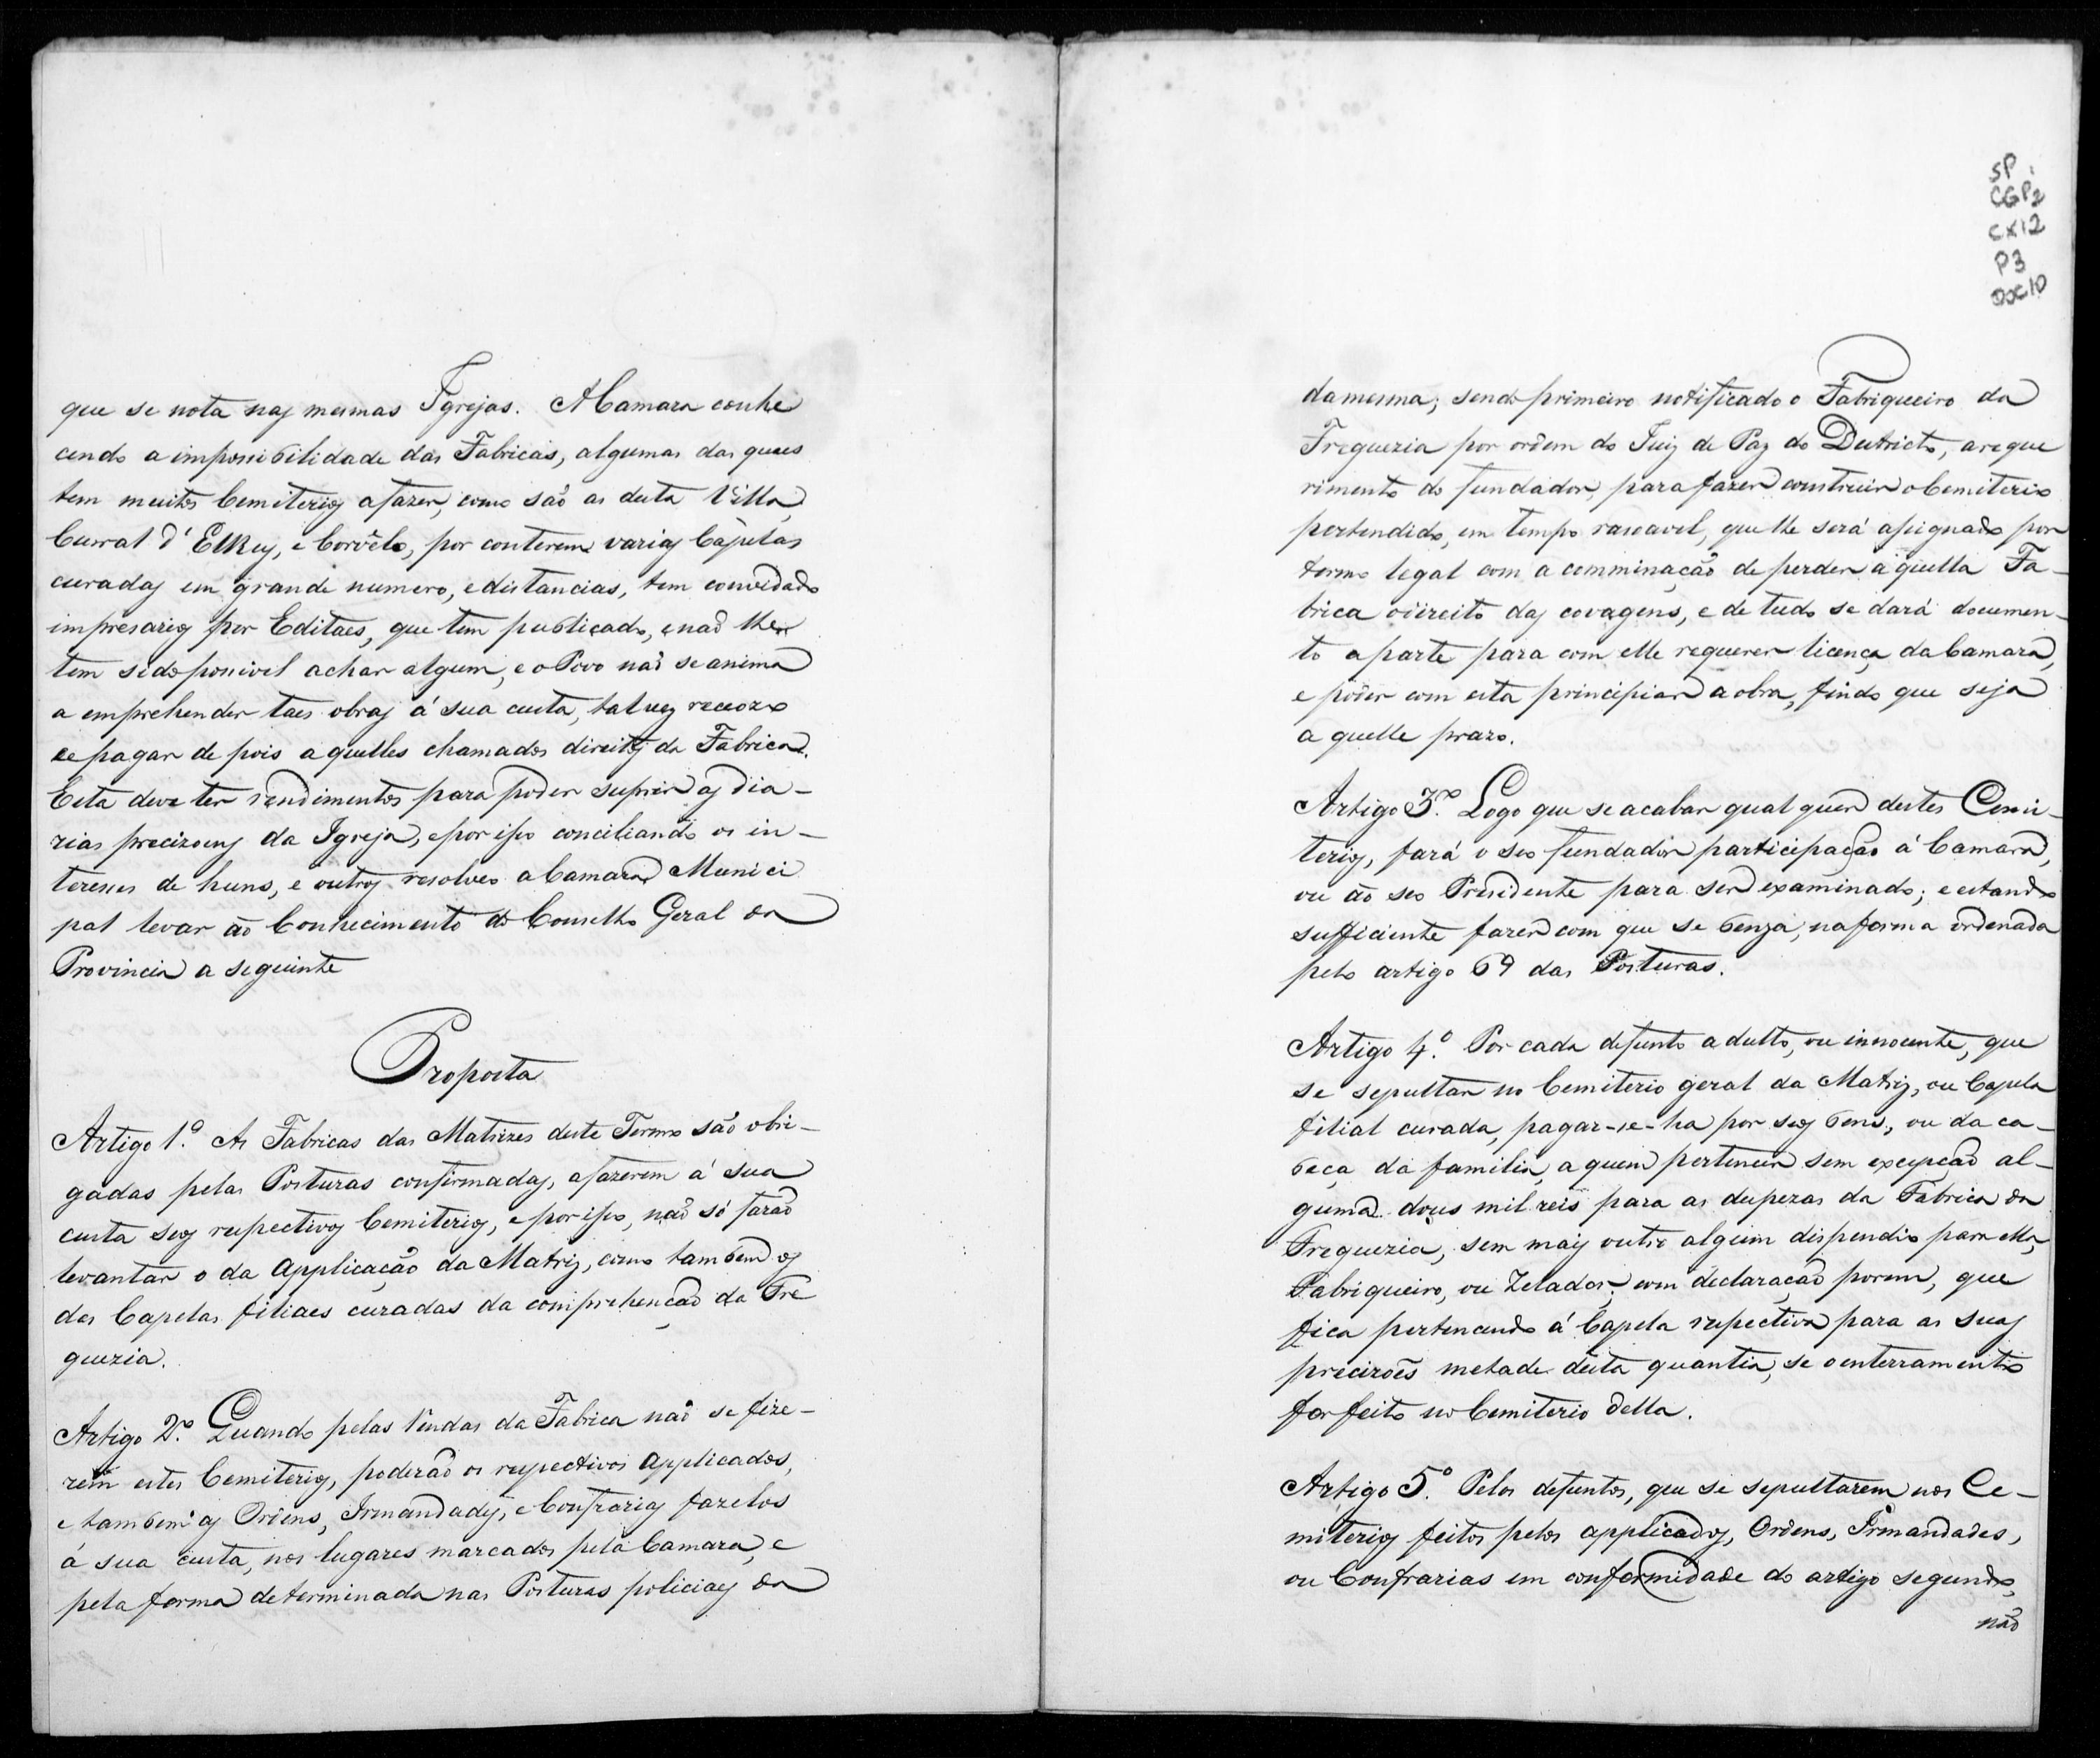 que se nota nas mesmas Igrejas. A Camara conhe
cendo a impossibilidade das Fabricas, algumas das quaes
tem muitos Cemiterios a fazer, como são as desta Villa,
Curral d'ElRey, e Corvêlo, por conterem varias Capelas
curadas em grande numero, e distancias, tem convidado
impresarios por Editaes, que tem publicado, e naõ lhe
tem sido possivel achar algum, e o Povo naõ se anima
a emprehender taes obras á sua custa, talvez receozo
de pagar de pois a quelles chamados direitos da Fabrica.
Esta deve ter rendimentos para poder suprir as dia-
rias precizoens da Igreja, e por isso conciliando os in-
teresses de huns, e outros resolveo a Camara Munici
pal levar ao Conhecimento do Conselho Geral da
Provincia a seguinte
Proposta
Artigo 1.º As Fabricas das Matrizes deste Termo são obri-
gadas pelas Posturas confirmadas, a fazerem á sua
custa seos respectivos Cemiterios, e por isso, naõ só faraõ
levantar o da Applicação da Matriz, como tambem os
das Capelas filiaes curadas da comprehençaõ da Fre
guezia.
Artigo 2.º Quando pelas rendas da Fabrica naõ se fize-
rem estes Cemiterios, poderaõ os respectivos Applicados,
e tambem as Ordens, Irmandades, e Confrarias fazelos
á sua custa, nos lugares marcados pela Camara, e
pela forma determinada nas Posturas policiaes da
SP
CGP2
CX12
P3
DOC10
da mesma; sendo primeiro notificado o Fabriqueiro da
Freguezia por ordem do Juiz de Paz do Destricto, a reque
rimento do fundador, para fazer construir o Cemiterio
pertendido, em tempo rasoavel, que lhe será assignado por
termo legal com a comminação de perder aquella Fa-
brica o direito das covagens, e de tudo se dará documen-
to a parte para com elle requerer licença da Camara,
e poder com esta principiar a obra, findo que seja
a quelle prazo.
Artigo 3.º Logo que se acabar qual quer destes Cemi-
terios, fará o seo fundador participação á Camara,
ou ao seo Presidente para ser examinado; e estando
sufficiente fazer com que se benza, na forma ordenada
pelo artigo 69 das Posturas.
Artigo 4.º Por cada defunto adulto, ou innocente, que
se sepultar no Cemiterio geral da Matriz, ou Capela
filial curada, pagar-se-ha por seos bens, ou da ca-
beça da familia, a quem pertencer sem excepçaõ al-
guma dous mil reis para as despezas da Fabrica da
Freguezia, sem mais outro algum dispendio para ella,
Fabriqueiro, ou Zelador; com declaraçaõ porem, que
fica pertencendo á Capela respectiva para as suas
precizoẽs metade desta quantia, se o enterramento
for feito no Cemiterio della.
Artigo 5.º Pelos defuntos, que se sepultarem nos Ce-
miterios feitos pelos applicados, Ordens, Irmandades,
ou Confrarias em conformidade do artigo segundo,
não